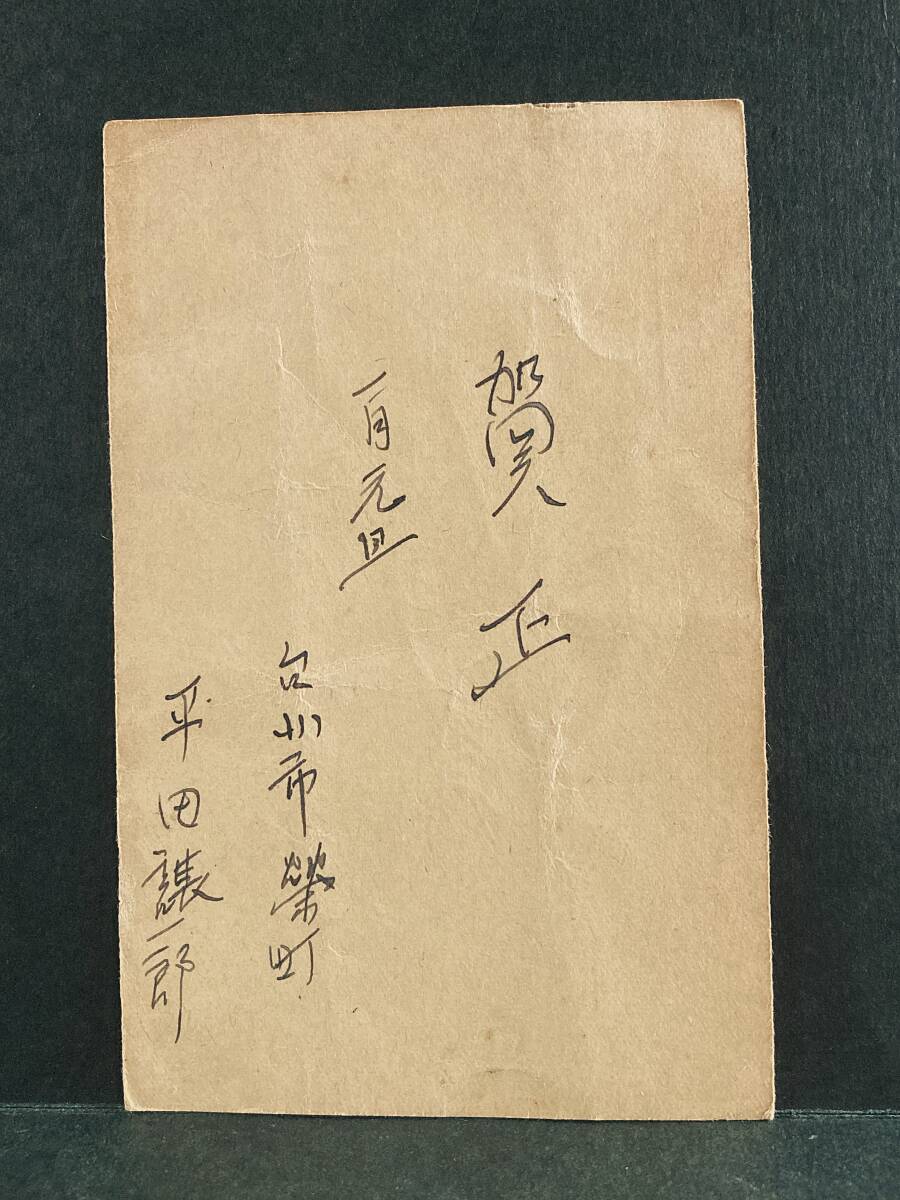 賀正
一月元旦
川市榮町
平田譲一郎